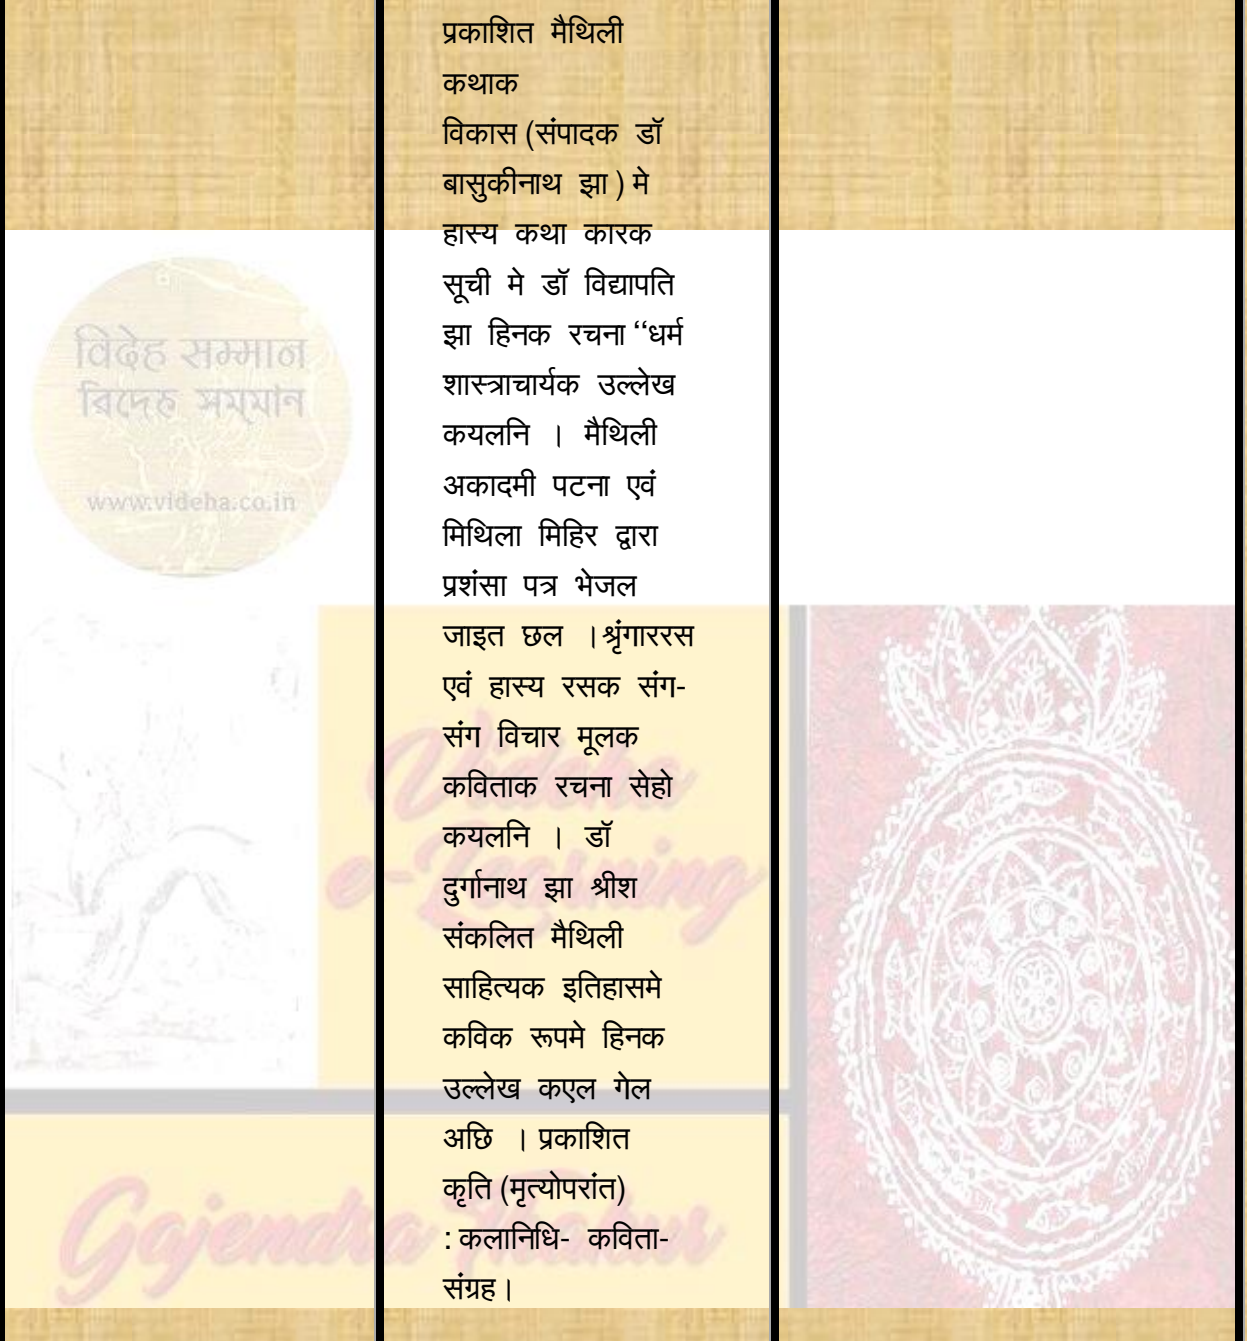 प्रकाशित मैथिली
कथाक
विकास (संपादक डॉ
बासुकीनाथ झा ) मे
हास्य कथा कारक
सूची मे डॉ विद्यापति
झा हिनक रचना ‘‘धर्म
शास्त्राचार्यक उल्लेख
कयलनि । मैथिली
अकादमी पटना एवं
मिथिला मिहिर द्वारा
प्रशंसा पत्र भेजल
जाइत छल ।श्रृंगाररस
एवं हास्य रसक संग-
संग विचार मूलक
कविताक रचना सेहो
कयलनि । डॉ
दुर्गानाथ झा श्रीश
संकलित मैथिली
साहित्यक इतिहासमे
कविक रूपमे हिनक
उल्लेख कएल गेल
अछि । प्रकाशित
कृति (मृत्योपरांत)
: कलानिधि- कविता-
संग्रह।
विदेह सम्मान
বিদেহ সম্মান
www.videha.co.in
Videha
e-Learning
Gajendra Thakur